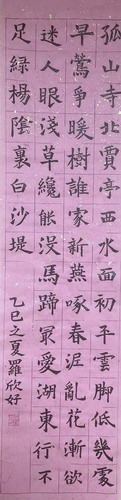 孤山寺北賈亭西水面初平雲脚低幾處
早鶯爭暖樹誰家新燕啄春泥亂花漸欲
迷人眼淺草纔能没馬蹄最愛湖東行不
足綠楊陰裏白沙堤
乙巳之夏羅欣妤